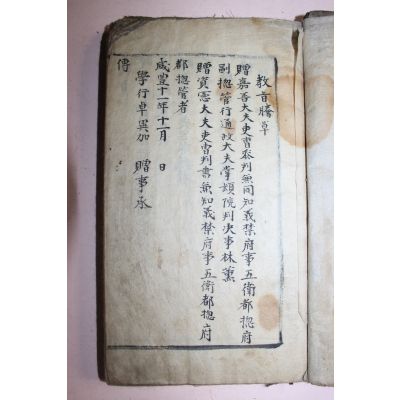 教旨謄草
贈嘉善大夫吏曹叅判兼同知義禁府事五衛都摠府
副摠管行通政大夫掌隷院判决事林薰
贈資憲大夫吏曹判書兼知義禁府事五衛都摠府
都摠管者
咸豊十一年十一月 日
學行卓異加 贈事承
傳